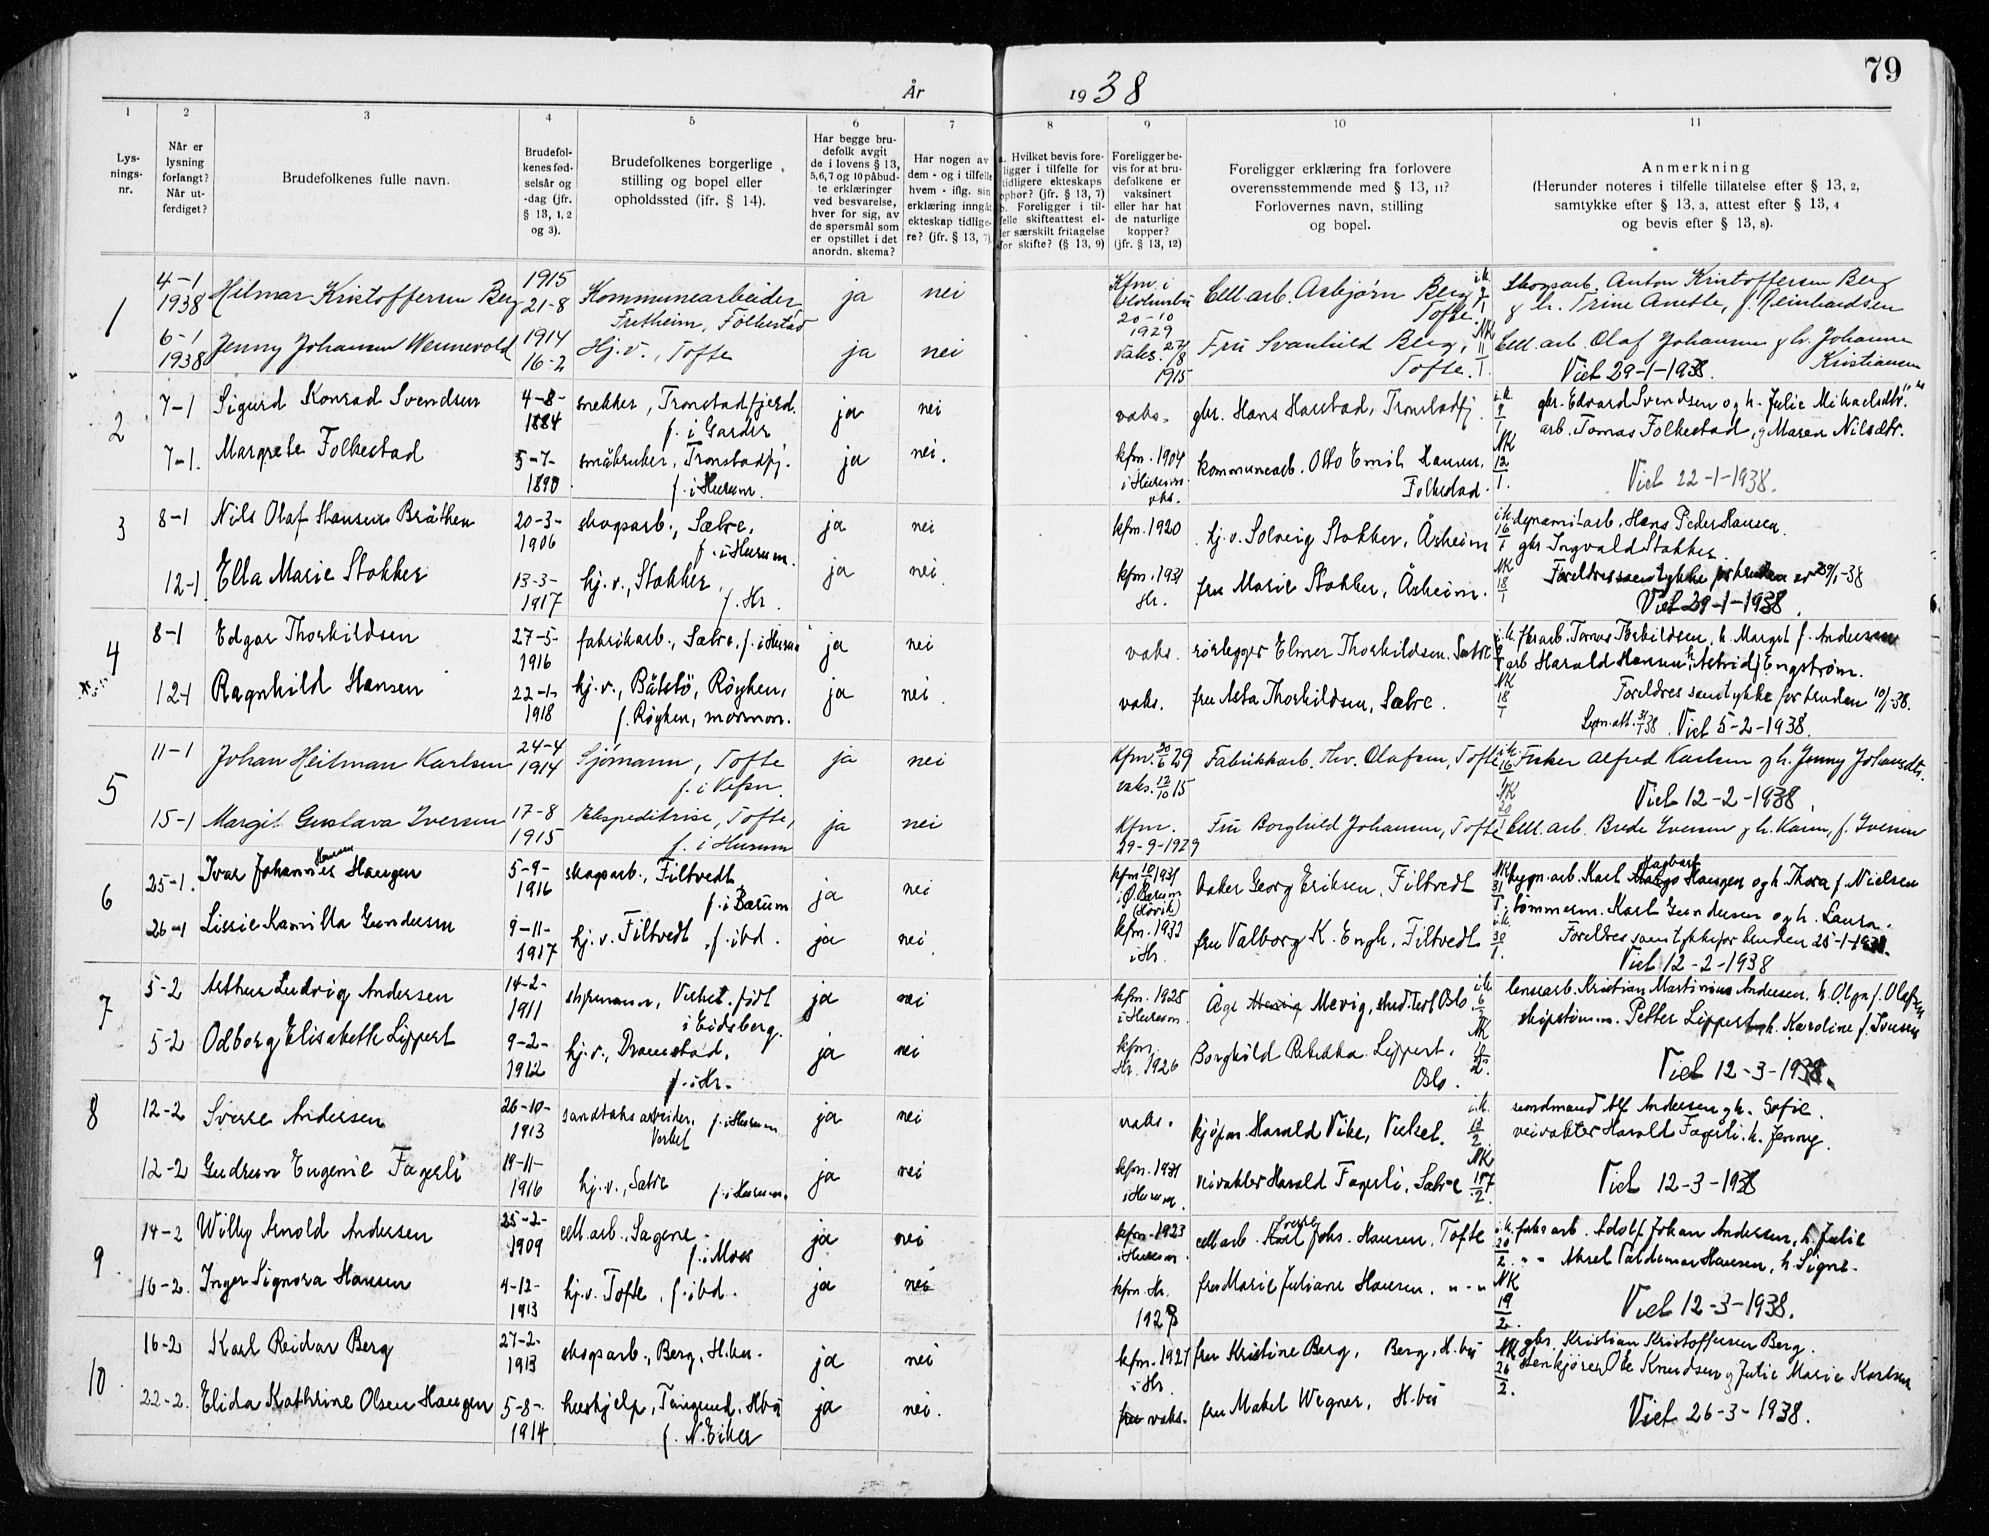 79
År 1938
1 2 3 4 5 6 7 8 9 10 11
Lysningsnr.
Når er lysning forlangt? Når utferdiget?
Brudefolkenes fulle navn.
Brudefolkenes fødselsår og -dag (jfr. § 13, 1, 2 og 3).
Brudefolkenes borgerlige stilling og bopel eller opholdssted (jfr. § 14).
Har begge brudefolk avgit de i lovens § 13, 5,6,7 og 10 påbudte erklæringer ved besvarelse, hver for sig, av de spørsmål som er opstillet i det anordn. skema?
Har nogen av dem - og i tilfelle hvem - iflg. sin erklæring inngått ekteskap tidligere? (jfr. § 13, 7)
a. Hvilket bevis foreligger i tilfelle for tidligere ekteskaps ophør? (jfr. § 13, 7) b. Foreligger i tilfelle skifteattest eller særskilt fritagelse for skifte? (§ 13, 9)
Foreligger bevis for at brudefolkene er vaksinert eller har hat de naturlige kopper? (jfr. § 13, 12)
Foreligger erklæring fra forlovere overensstemmende med § 13, 11? Forlovernes navn, stilling og bopel.
Anmerkning (Herunder noteres i tilfelle tillatelse efter § 13, 2, samtykke efter § 13, 3, attest efter § 13, 4 og bevis efter § 13, 8).
1
4-1 1938 Hilmar Kristoffersen Berg 1915 21-8 Kommunearbeider Fretheim, Folkestad ja nei Kfm. i 20-10 1929 Cell. arb. Asbjørn Berg Tofte. Skogsarb. Anton Kristoffersen Berg g h. Trine Anette, f. Reinhardsen
6-1 1938 Jenny Johansen Wennevold 1914 16-2 Hj. v., Tofte ja nei Vaks. 1915 Fru Svanhild Berg, Tofte. NK 11/1 Cell. arb. Olaf Johansen g h. Johanne Kristiansen
Viet 29-1-1938.
2
7-1 Sigurd Konrad Svendsen 4-8-1884 snekker, Tronstadfjerd. f. i Garder ja nei vaks. gbr. Hans Harstad, Tronstadfj. gbr. Edvard Svendsen og h. Julie Mikaelsdtr.
7-1. Margrete Folkestad 5-7-1890 småbruker, Tronstadfj. f. i Hurum. ja nei. kfm. 1904 i Hurum vks. kommunearb. Otto Emil Hansen, Folkestad. NK 12/1. arb. Tomas Folkestad, g Maren Nilsdtr.
Viet 22-1-1938.
3
8-1 Nils Olaf Hansen Bråthen 20-3-1906 skogsarb., Sætre, f. i Hurum. ja nei kfm. 1920 hj. v. Solveig Stokker, Åsheim i.k. 16/1 dynamitarb. Hans Peder Hansen. gbr Ingvald Stokker.
12-1 Ella Marie Stokker 13-3-1917 hj. v., Stokker, f. Hr. ja nei. kfm. 1931 Hr. fru Marie Stokker, Åsheim. NK 18/1 Foreldres samtykke for bruden
Viet 29-1-1938.
4
8-1 Edgar Thorkildsen 27-5-1916 fabrikarb., Sætre. f. i Hurum ja nei vaks. rørlegger Elmer Thorkildsen. Sætre arb. Tomas Torkildsen, h. Margit f. Andersen
12-1 Ragnhild Hansen 22-1-1918 hj. v., Båtstø, Røyken, f. Røyken, mormon. ja nei. vaks. fru Asta Thorkildsen, Sætre. NK 18/1 arb Harald Hansen h. Astrid f Engstrøm.
Foreldres samtykke for bruden 10/1-38.
Viet 5-2-1938.
5
11-1 Johan Heilman Karlsen 24-4 1914 Sjømann, Tofte f. i Vefsn. ja nei Kfm. 30/6 29 vaks. 12/10 15 Fabrikkarb. Thv. Olafsen, Tofte i.k. 16/1 Fisker Alfred Karlsen g h. Jenny Johansdtr.
Viet 12-2-1938.
15-1 Margit Gustava Iversen 17-8 1915 Ekspeditrise, Tofte, f. i Hurum ja nei Kfm. 29-9-1929 Fru Borghild Johansen, Tofte NK 20/1 Cell. arb. Brede Iversen g h. Karen, f. Iversen
6
25-1. Ivar Johannes Hansen Haugen 5-9-1916 skogsarb., Filtvedt f. i Bærum ja nei kfm 1931 Ø. Bærum (Høvik) baker Georg Eriksen, Filtvedt NK 31/1. bygn. arb. Karl Hagbart Haugen og h. Thora f Nielsen
26-1 Lissie Kamilla Gundersen 9-11-1917 hj. v. Filtvedt, f. ibd. ja nei. kfm. 1932 i Hr. fru Valborg K. Engh, Filtvedt i.k. 30/1. tømmerm. Karl Gundersen og h. Laura.
Foreldres samtykke for bruden 25-1-1938.
Viet 12-2-1938
7
5-2 Arthur Ludvig Andersen 14-2-1911 styrmann, Verket. født i Eidsberg. ja nei kfm. 1925 i Hurum. Åge Mevig, stud. Oslo i.k. 6/2 lensearb. Kristian Martinius Andersen, h. Olga f. Olafsen
5-2 Odborg Elisabeth Lippert 9-2-1912 hj. v., Dramstad, f. i Hr. ja nei kfm. Hr. 1926 Borghild Rebekka Lippert, Oslo. NK skipstømm. Petter Lippert og h. Karoline f. Iversen
Viet 12-3-1938.
8
12-2 Sverre Andersen 26-10-1913 sandtaksarbeider, Verket f. i Hurum ja nei vaks. kjøpm. Harald Vike, Verket. i.k. 13/2 Alf Andersen g h. Sofie.
12-2 Gudrun Eugenie Fagerli 19-11-1916 hj. v., Sætre f. i Hurum. ja nei kfm. 1931 i Hurum. veivokter Harald Fagerli, Sætre NK 17/2. veivokter Harald Fagerli. h. Jenny.
Viet 12-3-1938
9
14-2 Willy Arnold Andersen 25-2-1909 cell. arb., Sagene. f. i Moss ja nei kfm. 1923 i Hurum cell arb. Sverre Johs. Hansen, Tofte i.k. 20/2. fabr arb. Adolf Johan Andersen, h. Julie
16-2. Inger Signora Hansen 4-12-1913 hj. v. Tofte, f. ibd. ja nei kfm. Hr. 1928 fru Marie Juliane Hansen. " - " NK 19/2. " " Aksel Valdemar Hansen, h. Signe.
Viet 12-3-1938.
10
16-2 Karl Reidar Berg 27-2-1913 skogsarb., Berg, H.bu. ja nei kfm. 1927 i Hr. fru Kristine Berg, Berg, H. bu NK 26/2. gbr. Kristian Kristoffersen Berg.
22-2. Elida Kathrine Olsen Haugen 5-8-1914 hushjelp, Tangend, Hbu f. N. Eiker ja nei. vaks. fru Makel Wegner, H. bu stenkjører Ole Knudsen g Julie Marie Karlsen
Viet 26-3-1938.